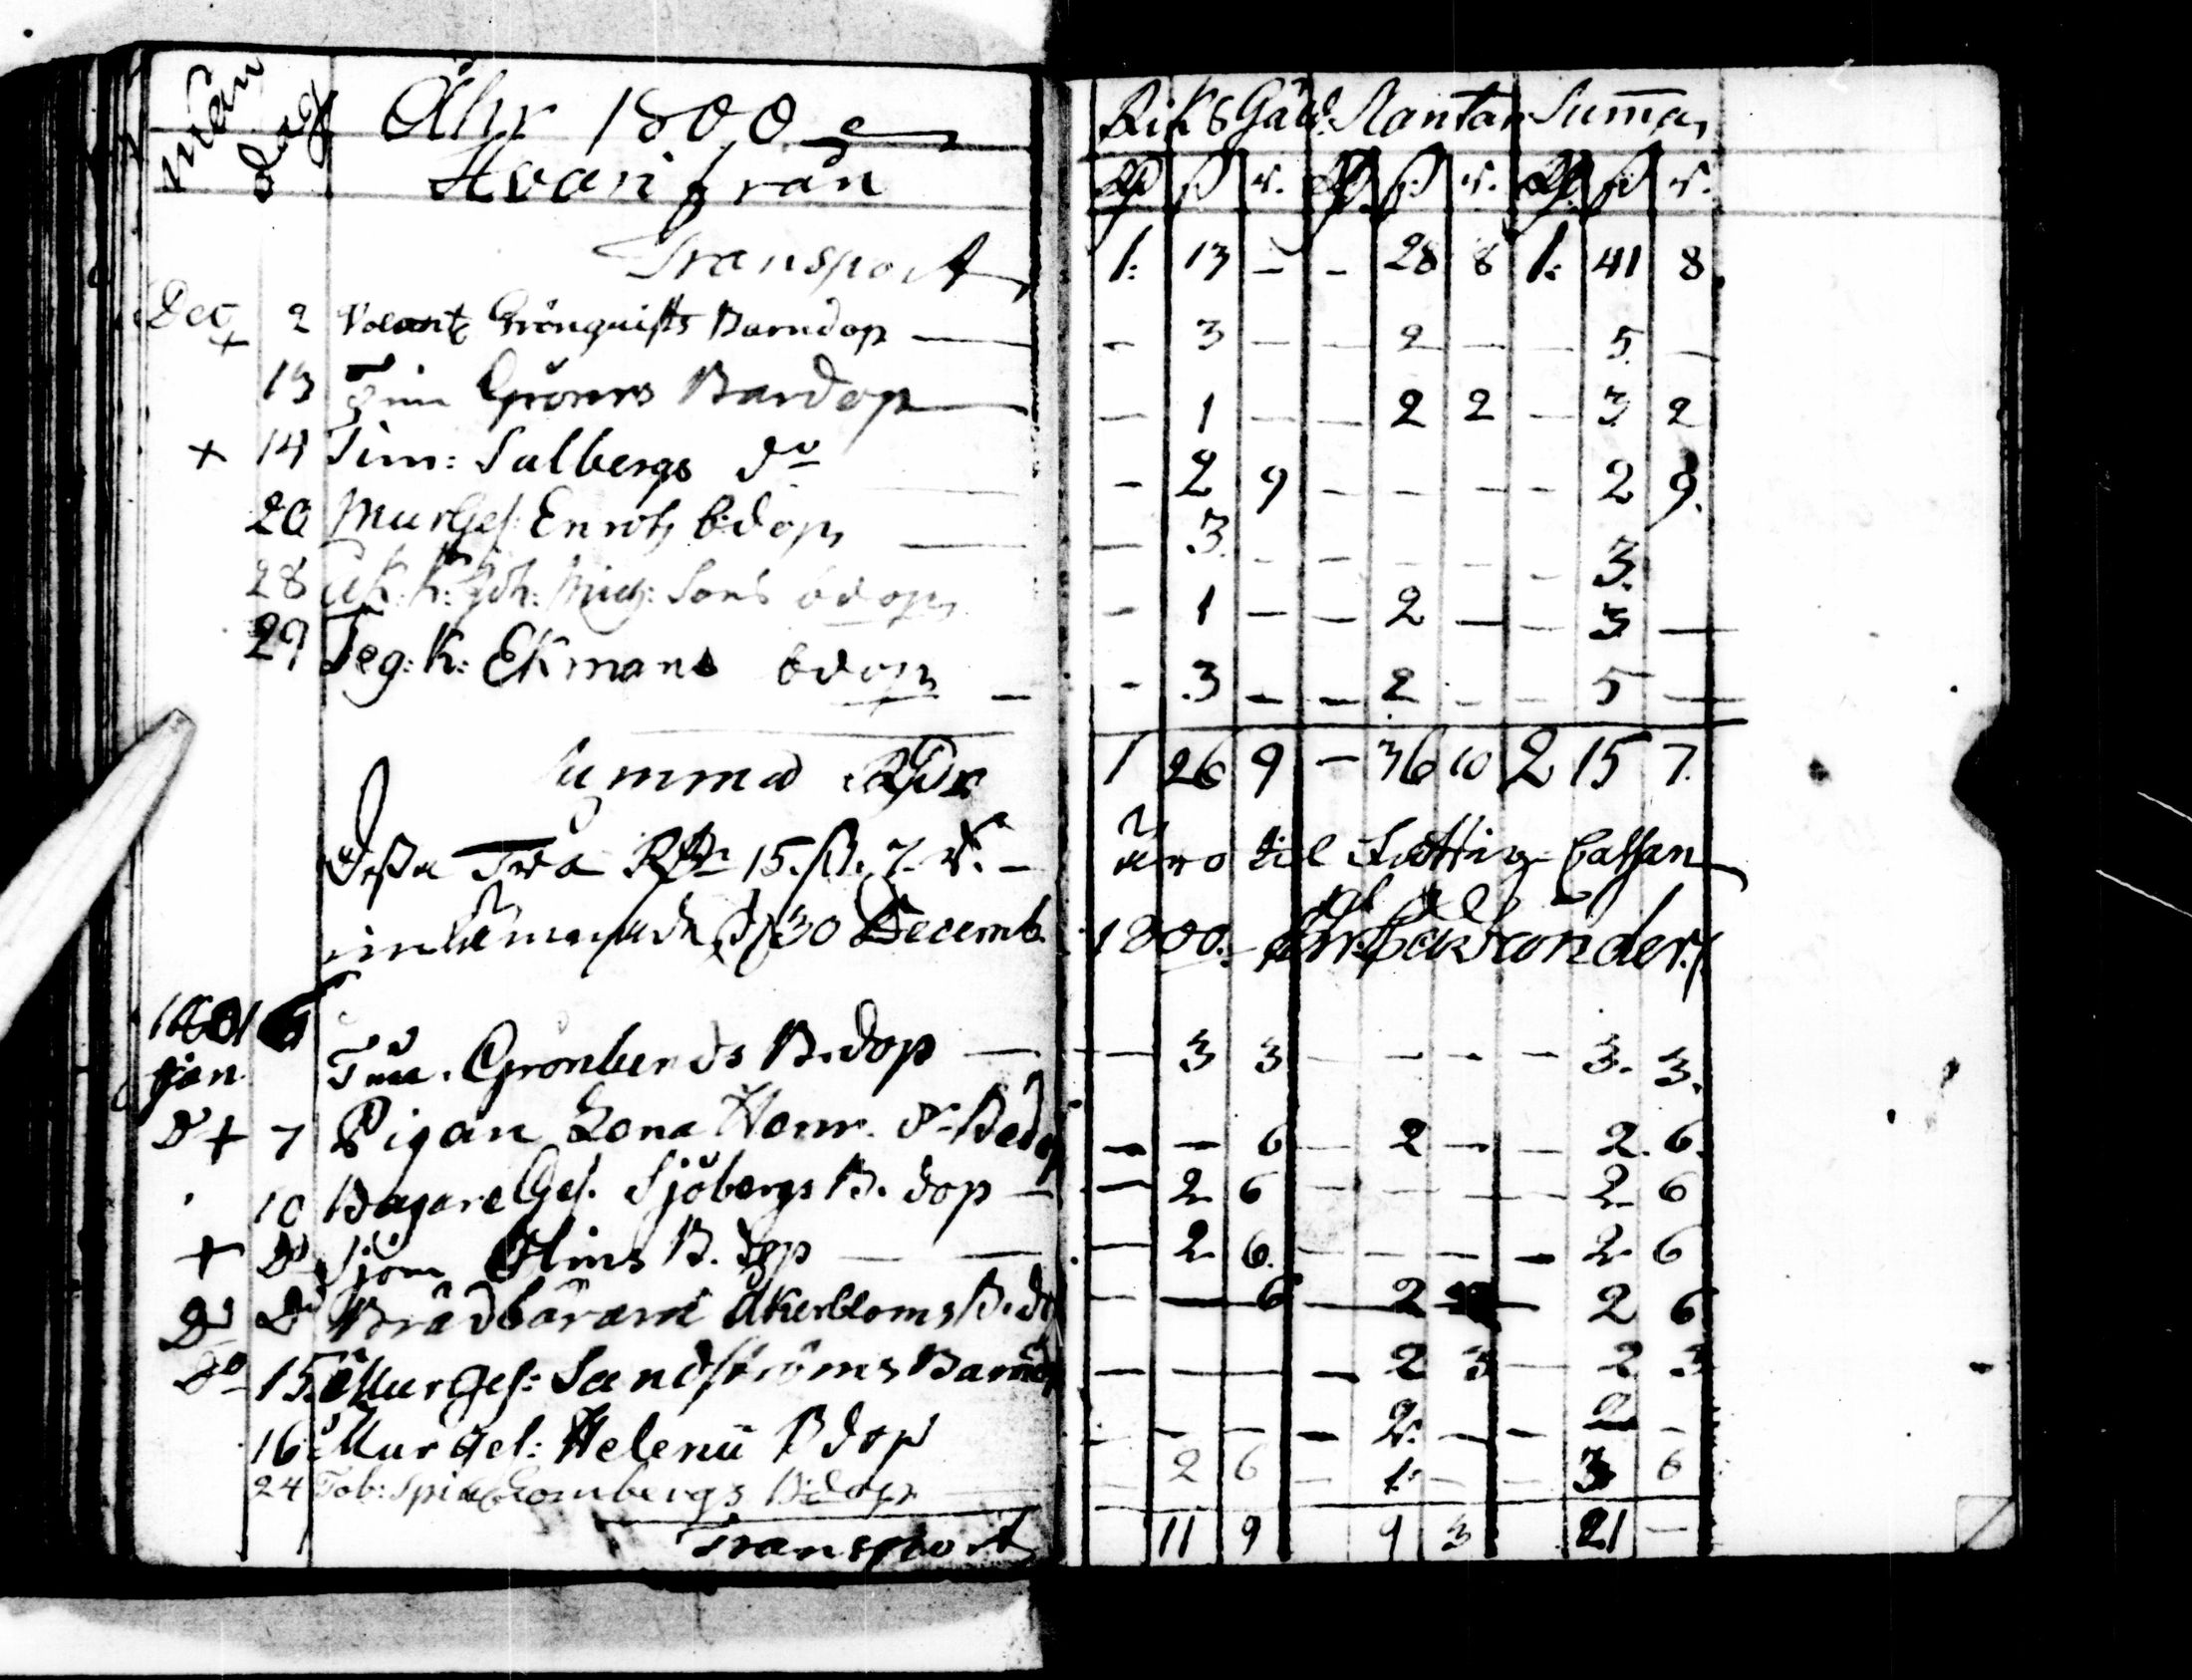 Mån dag Åhr 1800 Riks Gäld. Slantar Summa
Hvarifrån ß r. ß r. ß r.
Transport 1: 13 – – 28 8 1: 41 8
Dec 2 Grönquists Barndop — – 3 – – 2 – – 5 –
+ 13 Tim Gröners Bardop — – 1 – – 2 2 – 3 2
+ 14 Tim: Salbergs do – 2 9 – – – – 2 9.
20 MurGes: Enroths bdop – 3. – – – – – 3.
28 K: Joh: Mich: Sons bdop – 1 – – 2 – – 3 –
29 Teg: K: Ekmans bdop – – 3 – – 2 – – 5 –
Summa RDr 1 26 9 – 36 10 2 15 7.
Dessa Två RDr 15. ß. 7. r. – äro til Fattig-Cassan
inlämnade d 30 Decemb. 1800.
1801 Jan 6 Tim. Grönlunds B.dop — – 3 3 – – – – 3. 3.
Do + 7 Pigan Lena Henr. dr Bdop – – 6 2 – – 2. 6.
10 BagareGes. Sjöbergs B. dop – – 2 6 – – – – 2 6
+ Do Sjöm Hins B. dop — – 2 6. – – – – 2 6
Do Do Brädbärare Åkerbloms B.do – – 6 – 2 – 2 6
Do 15. MurGes: Sandströms Barnd – – – – 2 3 – 2 3
16 MurGes: Heleni Bdop – – – – 2. – – 2 –
24 Tob: Spin Lombergs B:dop 2 6 – 1 – – 3 6
Transport 11 9 9 3 21 –